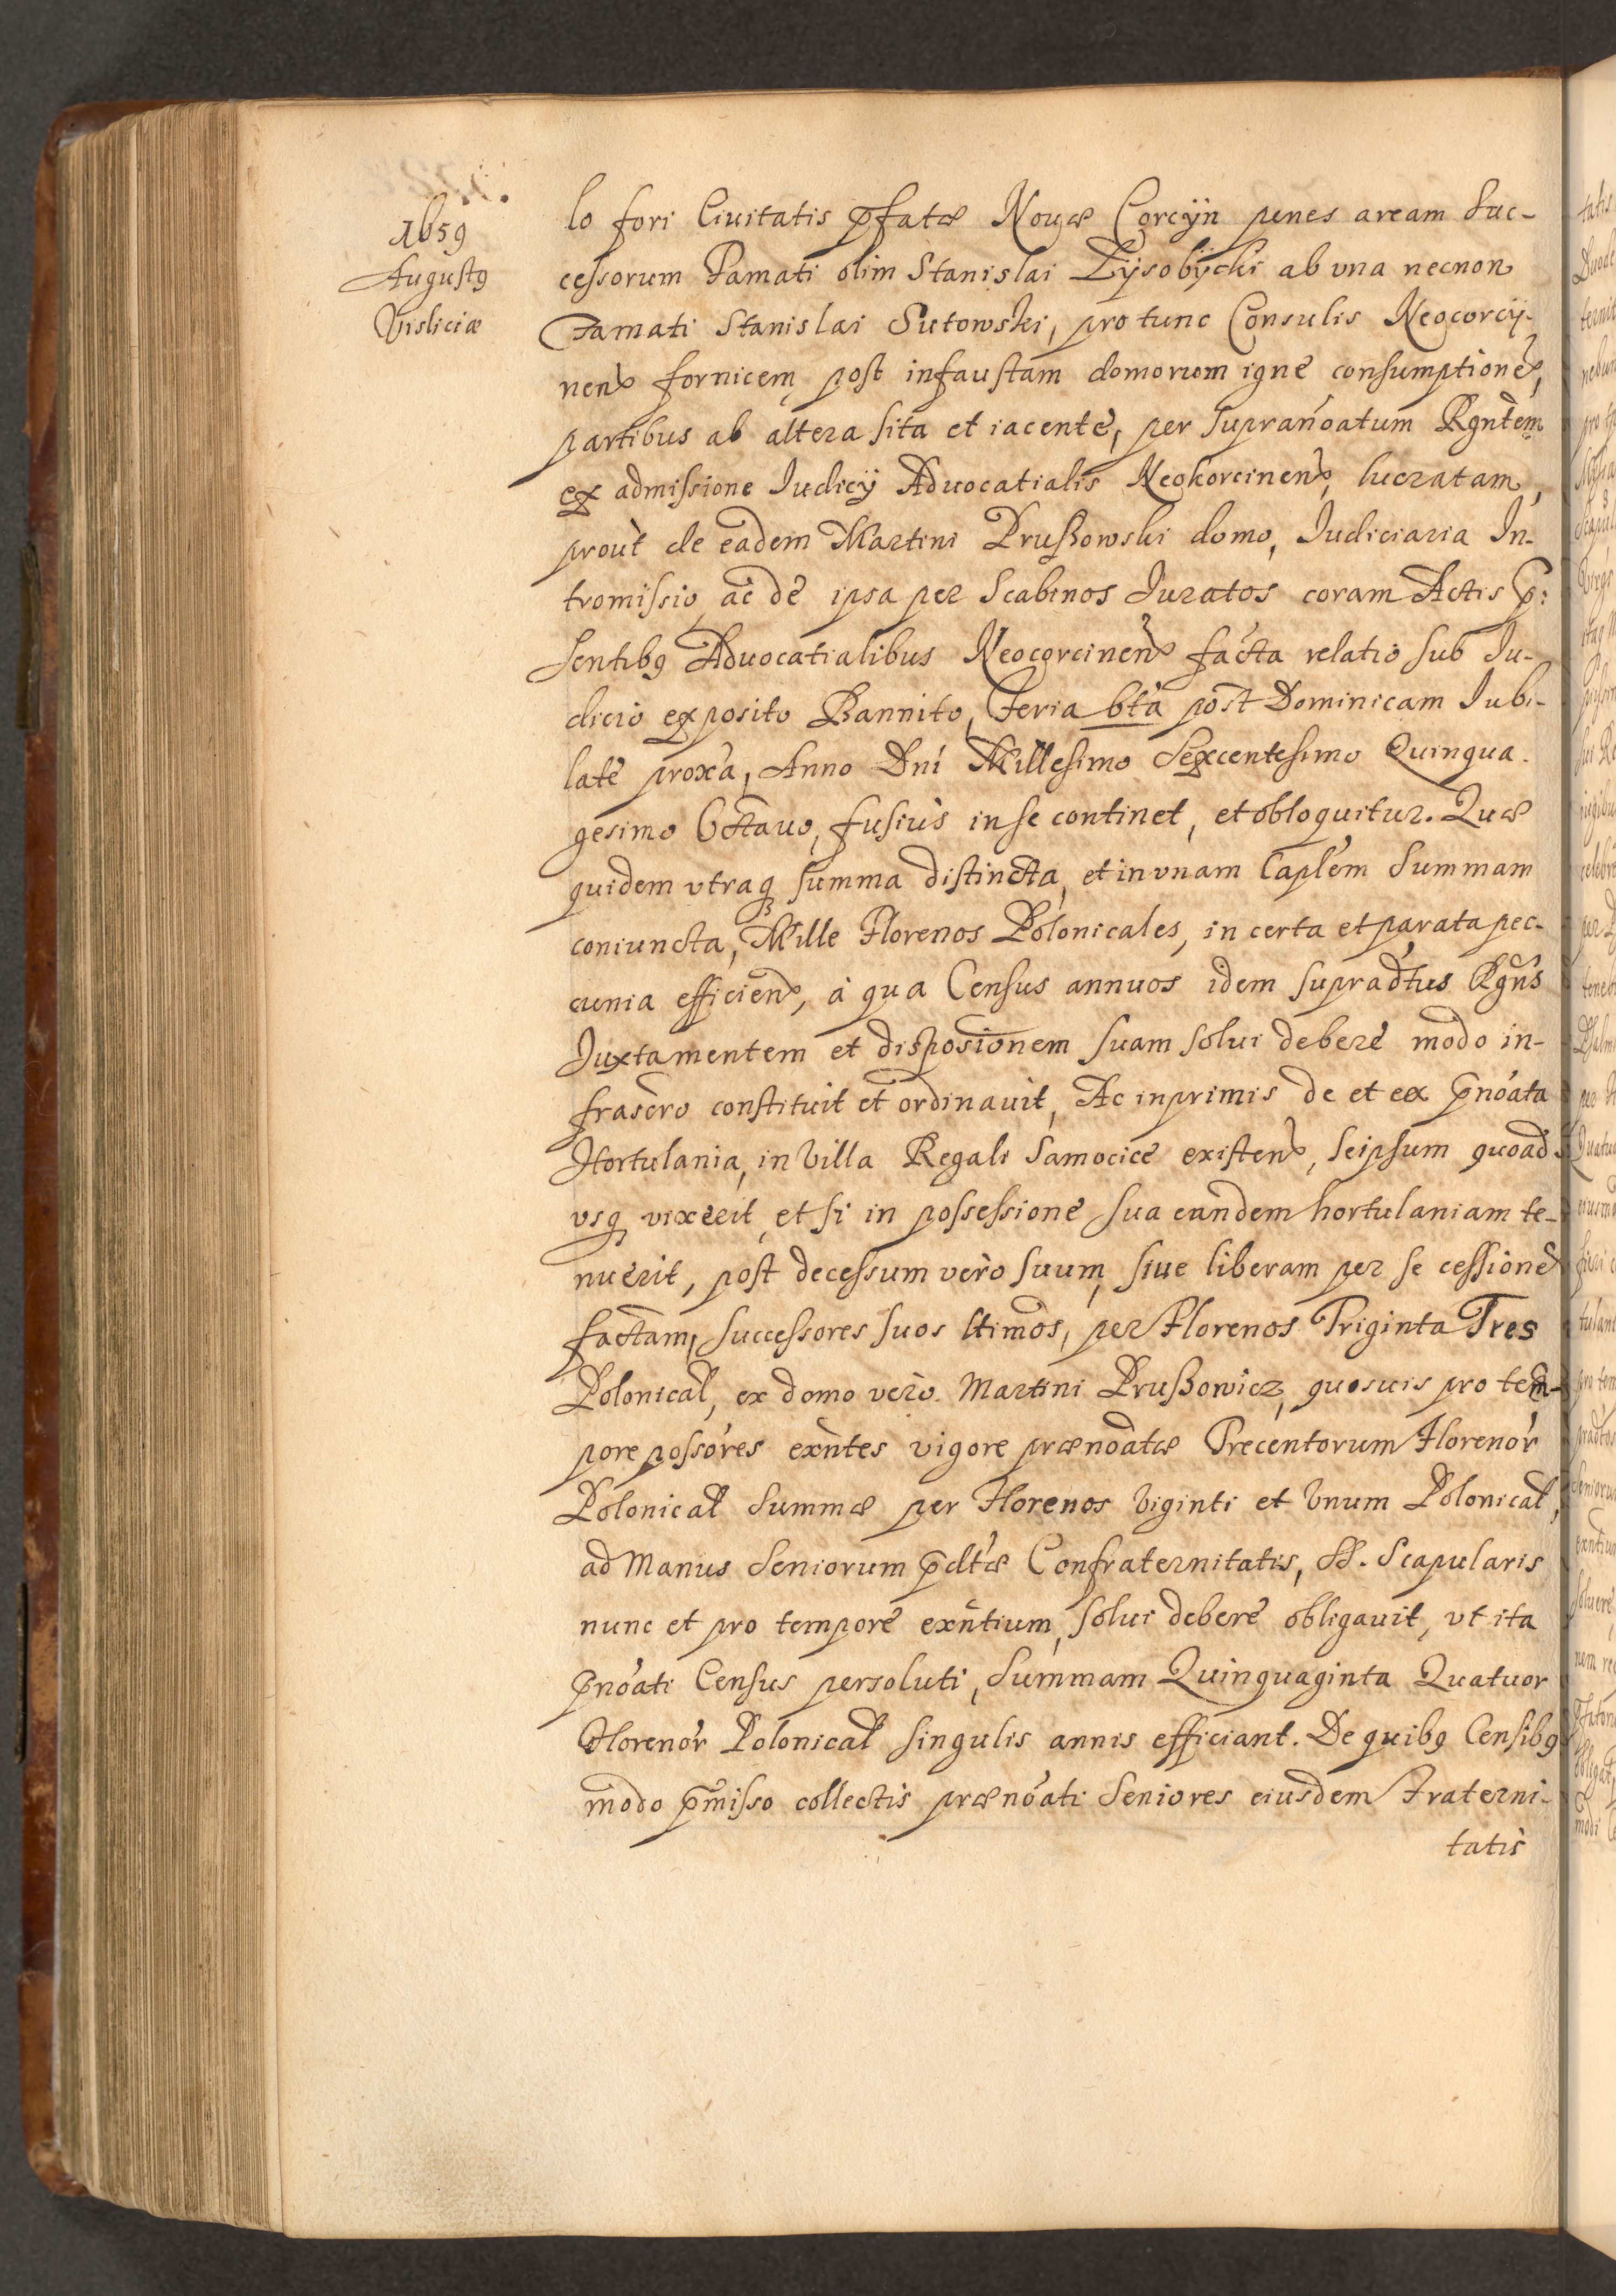 1659
Augusto
Visliciæ
lo fori Ciuitatis p̄fatæ Nouæ Corcÿn penes aream Suc-
cessorum Famati olim Stanislai Łÿsobÿcki ab vna necnon
Famati Stanislai Sutowski, pro tunc Consulis Neocorcÿ-
nen̄ fornicem, post infaustam domorum igne consumptione,
partibus ab altera sita et iacente, per supran̄oatum Rgnt̄em
ex admissione Iudicÿ Aduocatialis Neokorcinen̄, lucratam,
proùt de eadem Martini Prußowski domo, Iudiciaria In-
tromissio, ac de ipsa per Scabinos Iuratos coram Actis p̄:
sentibꝯ Aduocatialibus Neocorcinen̄ facta relatio sub Iu-
dicio exposito Bannito, Feria 6tà post Dominicam Iubi-
late prox̄a, Anno Dn̄i Millesimo Sexcentesimo Quinqua-
gesimo Octauo, fusiùs in se continet, et obloquitur. Quæ
quidem vtraqꝫ summa distincta, et in vnam Capl̄em Summam
coniuncta, Mille Florenos Polonicales, in certa et parata pec-
cunia efficien̄, à qua Census annuos idem supradt̄us Rgn̄s
Iuxta mentem et disposi͞onem suam solui debere modo in-
frascr̄o constituit et ordinauit, Ac inprimis de et ex p̄nōata
Hortulania, in Villa Regali Samocice existen̄, seipsum quoad
vsqꝫ vixerit, et si in possessione sua eandem hortulaniam te-
nuerit, post decessum verò suum, siue liberam per se cessione
factam, successores suos ltimōs, per Florenos Triginta Tres
Polonical, ex domo verò Martini Prußowicz, quosuis pro tem-
pore possōres exn̄tes vigore prænōatæ Trecentorum Florenor̄
Polonical Summæ per Florenos Viginti et Vnum Polonical,
ad Manus Seniorum p̄dt̄æ Confraternitatis, SS. Scapularis
nunc et pro tempore exn̄tium, solui debere obligauit, vt ita
p̄nōati Census persoluti, Summam Quinquaginta Quatuor
Florenor̄ Polonical singulis annis efficiant. De quibꝯ Censibꝯ
modo p̄misso collectis prænōati Seniores eiusdem Fraterni-
tatis